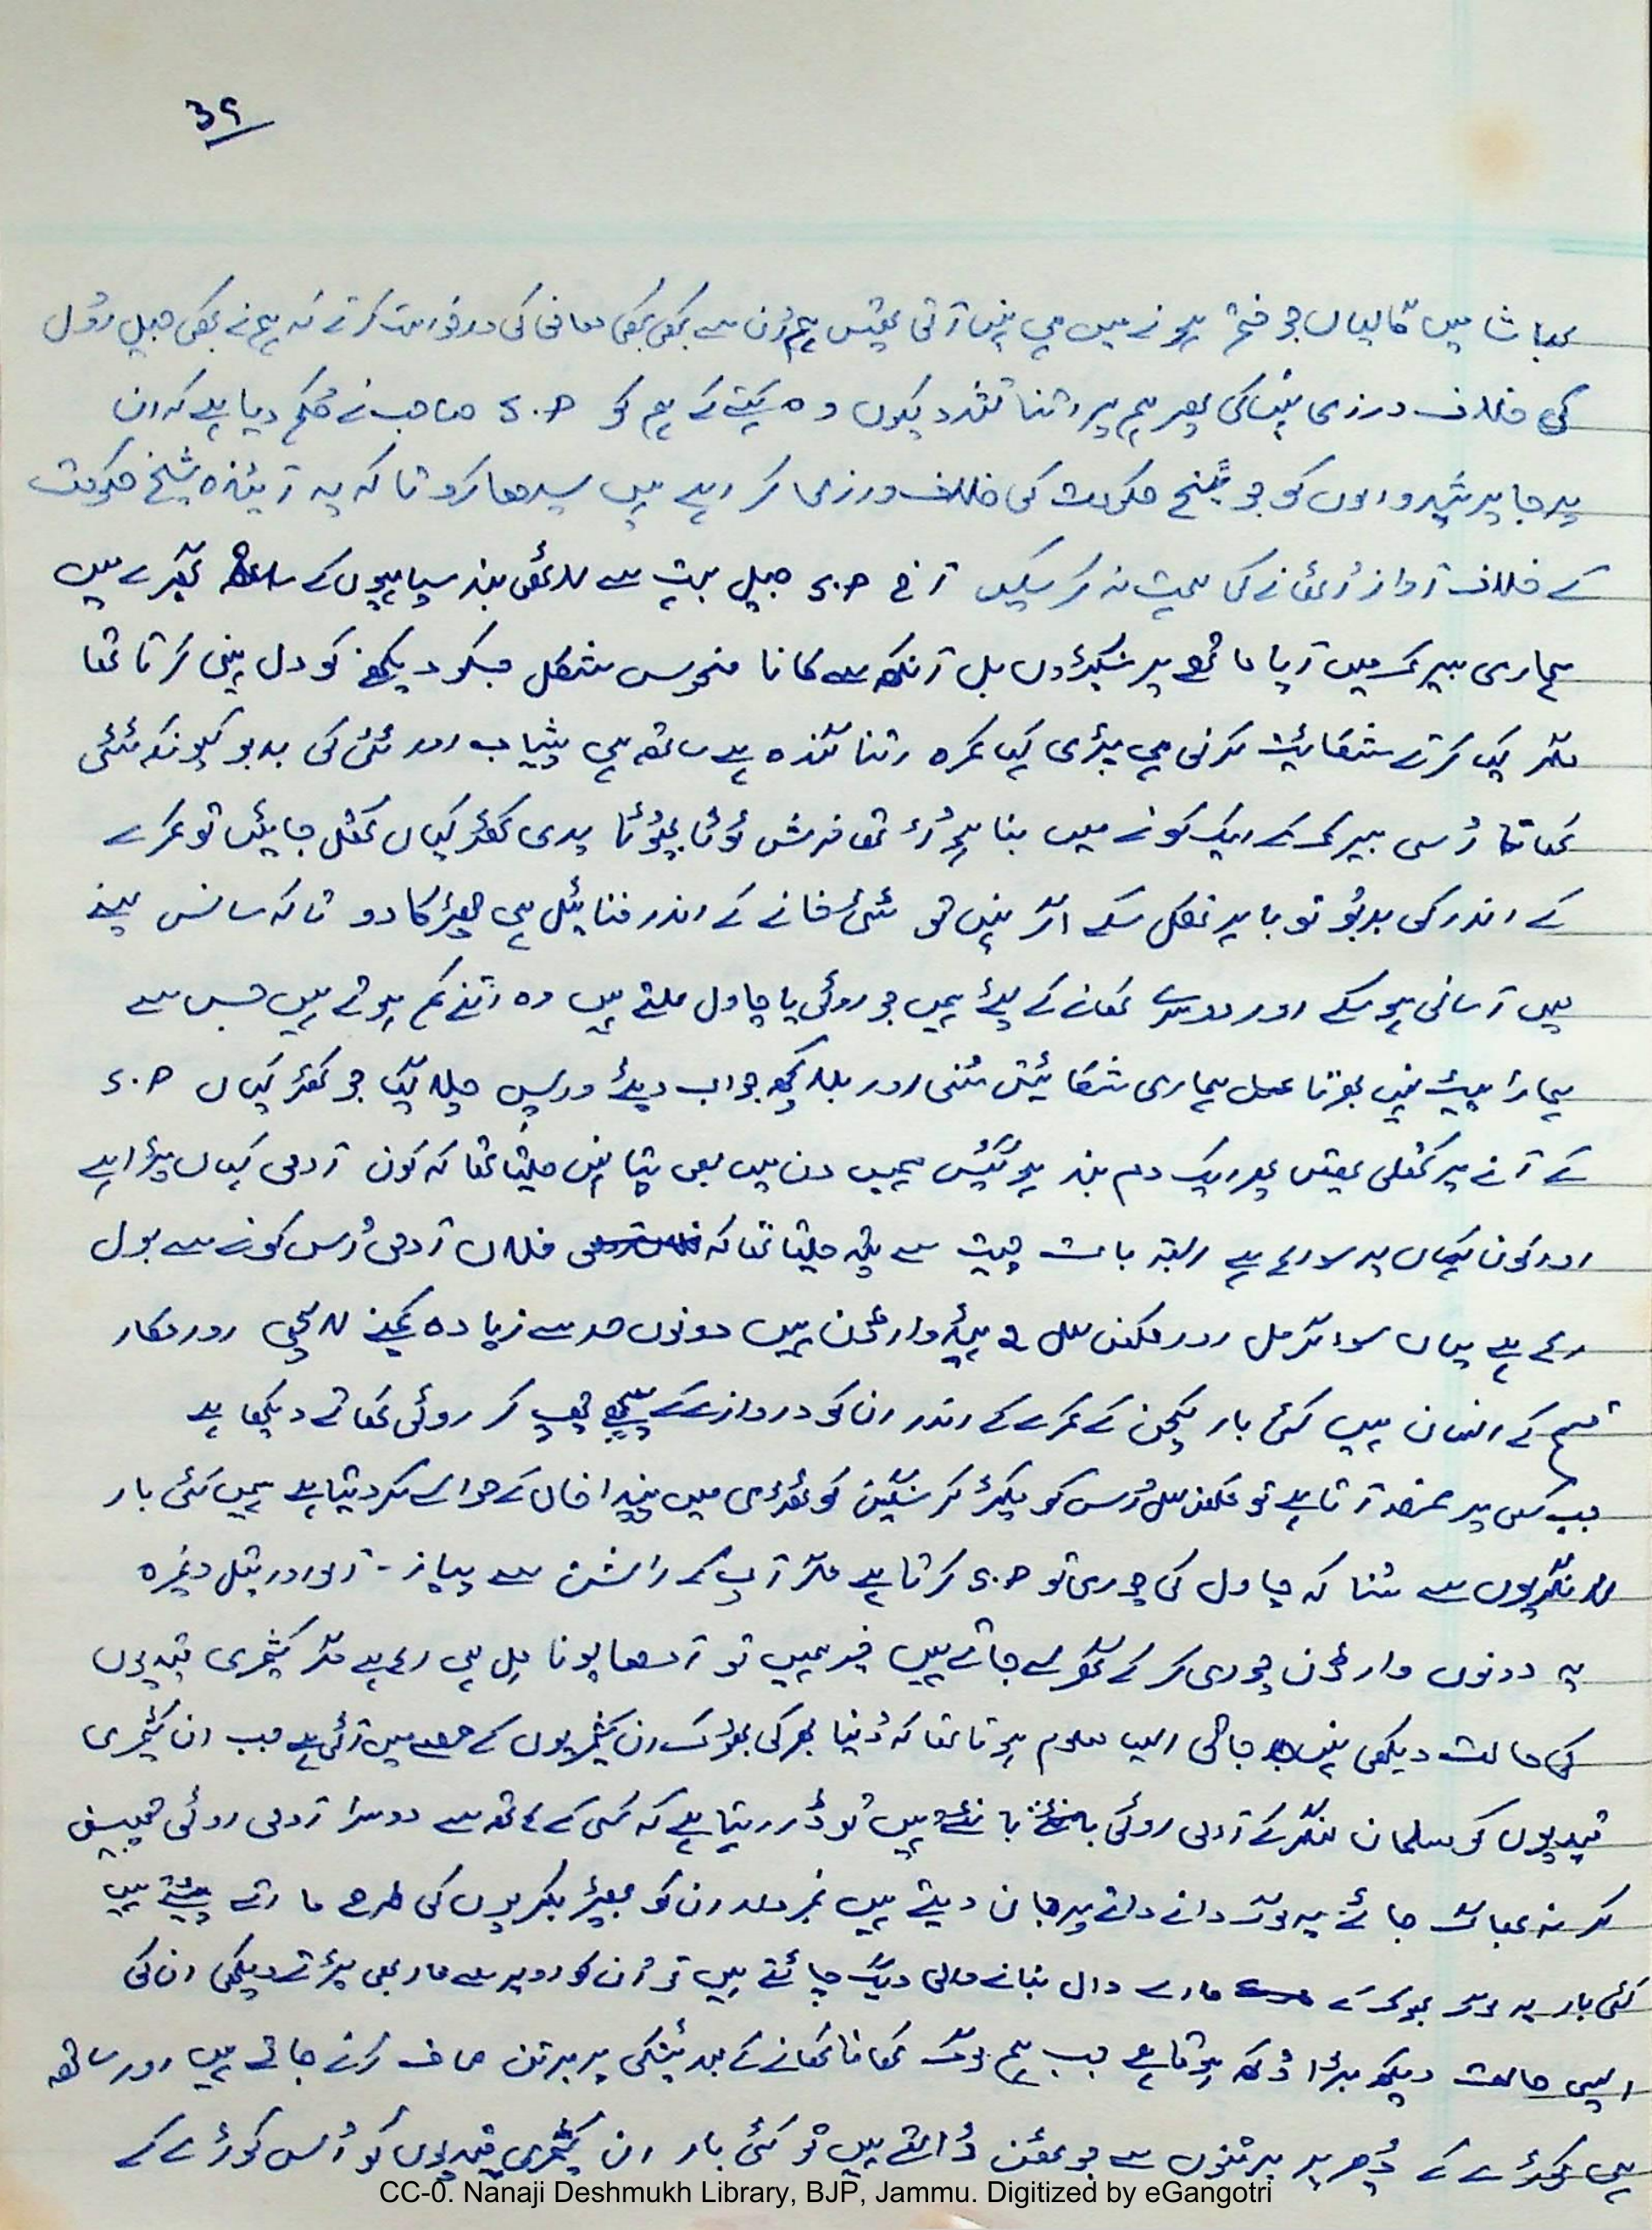 39
بھاشا میں گالیاں جو ختم ہونے میں ہی نہیں آتی تھیں ہم اُن سے کبھی کبھی معافی کی درخواست کرتے کہ ہم نے کبھی جیل رُول
کی خلاف ورزی نہیں کی پھر ہم پر اتنا تشدد کیوں وہ کہتے کے ہم کو D.S صاحب نے حُکم دیا ہے کہ ان
پرجا پرشد والوں کو جو شیخ حکومت کی خلاف ورزی کر رہے ہیں سیدھا کرو تا کہ یہ آیندہ شیخ حکومت
کے خلاف آواز اُٹھانے کی ہمت نہ کر سکیں آج D.S جیل بہت سے لاٹھی بند سپاہیوں کے ساتھ گھیرے میں
ہماری بیرک میں آیا ماتھے پر سینکڑوں بل آنکھ سے کانا منحوس شکل جسکو دیکھنے کو دل نہیں کرتا تھا
مگر کیا کرتے شکائیت کرنی ہی پڑی کیا کمرہ اتنا گندہ ہے ساتھ ہی پیشاب اور ٹٹی کی بدبو کیونکہ ٹٹی
کھاتا اُسی بیرک کے ایک کونے میں بنا ہوُا تھا فرش ٹوُٹا پھوُٹا پڑی کھڑکیاں کھل جائیں تو کمرے
کے اندر کی بدبوُ تو باہر نکل سکے اگر نہیں تو ٹٹی خانے کے اندر فنائیل ہی چھڑکا دو تا کہ سانس لینے
میں آسانی ہو سکے اور دوسرے کھانے کے لئے ہمیں جو روٹی یا چاول ملتے ہیں وہ اتنے کم ہوتے ہیں جس سے
ہمارا پیٹ نہیں بھرتا عمل ہماری شکائیتں سُنی اور بلا کچھ جواب دیئے واپس چلا گیا جو کھڑکیاں D.S
کے آنے پر کھلی تھیں پھر ایک دم بند ہو گئیں ہمیں دن میں بھی پتا نہیں چلتا تھا کہ کون آدمی کہاں پڑا ہے
اور کون کہاں پر سو رہا ہے البتہ بات چیت سے پتہ چلتا تھا کہ فلاں آدمی اُس کونے سے بول
رہا ہے یہاں سوا گرمل اور مکھن لال 2 ہیڈ وارڈن ہیں دونوں حد سے زیادہ کمینے لالچی اور مکار
قسم کے انسان ہیں کئی بار کچن کے کمرے کے اندر ان کو دروازے کے پیچھے چھپ کر روٹی کھاتے دیکھا ہے
جب کسی پر غصہ آتا ہے تو مکھن لال اُس کو پکڑ کر سنگین کوٹھڑی میں پنڈا خاں کے حوالے کر دیتا ہے ہمیں کئی بار
لانگریوں سے سُنا کہ چاول کی چوری تو D.S کرتا ہے مگر آپ کے راشن سے پیاز - آلو اور تیل وغیرہ
یہ دونوں وارڈن چوری کر کے گھر لے جاتے ہیں خیر ہمیں تو آدھا پونا مل ہی رہا ہے مگر کشمیری قیدیوں
کی حالت دیکھی نہیں جاتی ایسا معلوم ہوتا تھا کہ دُنیا بھر کی بھوک ان کشمیریوں کے حصے میں آئی ہے جب ان کشمیری
قیدیوں کو مسلمان لنگر کے آدمی روٹی بانٹنے بانٹتے ہیں تو ڈر رہتا ہے کہ کسی کے ہاتھ سے دوسرا آدمی روٹی چھین
کر نہ بھاگ جائے یہ لوگ دانے دانے پر جان دیتے ہیں نمبردار ان کو بھیڑ بکریوں کی طرح مارتے پیٹتے ہیں
کئی بار یہ لوگ بھوک کے مارے دال بنانے والی دیگ چاٹتے ہیں تو اُن کو اوپر سے مار بھی پڑتے دیکھی ان کی
ایسی حالت دیکھ بڑا دُکھ ہوتا ہے جب ہم لوگ کھانا کھانے کے بعد ٹینکی پر برتن صاف کرنے جاتے ہیں اور ساتھ
ہی کوڑے کے ڈھیر پر برتنوں سے جوٹھن ڈالتے ہیں تو کئی بار ان کشمیری قیدیوں کو اُس کوڑے کے
CC-0. Nanaji Deshmukh Library, BJP, Jammu. Digitized by eGangotri